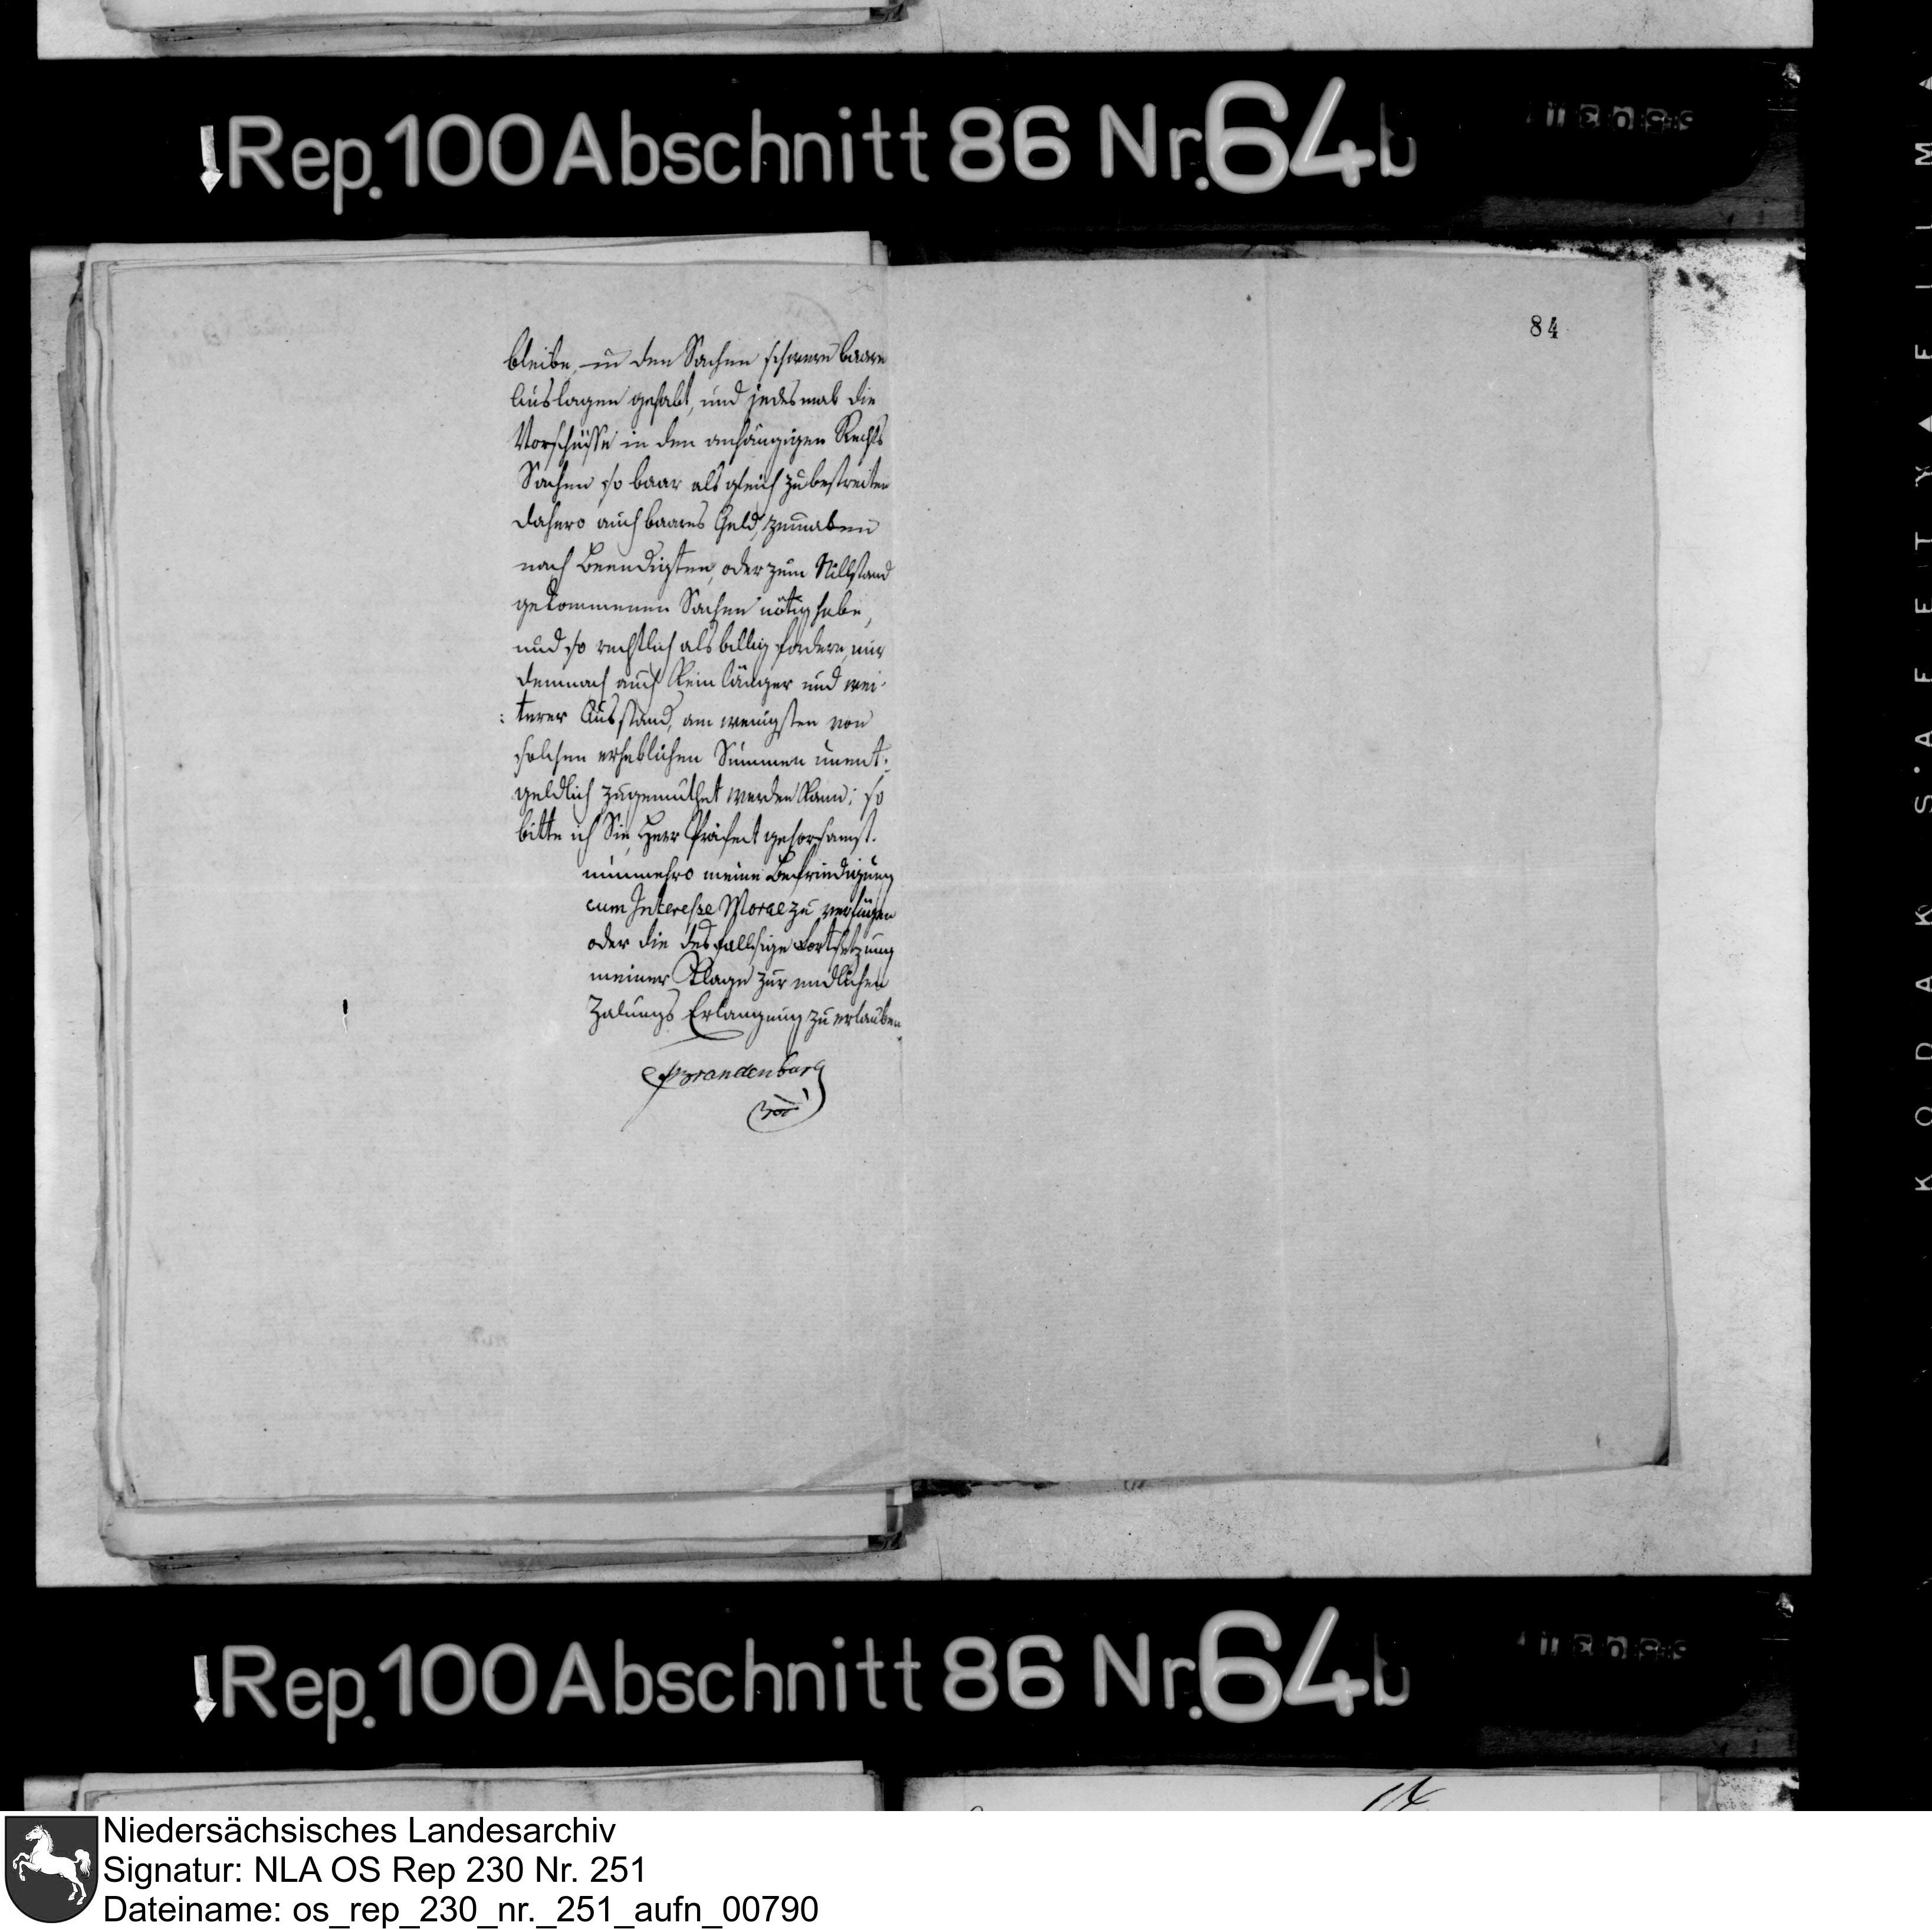 Rep. 100 Abschnitt 86 Nr. 64b
84
bleibe, in den Sachen schwere baare
Auslagen gehabt, und jedesmal die
Vorschüsse in den anhängigen Rechts
Sachen so baar als gleich zu bestreiten
dahero auch baares Geld, zumalen
nach Beendigten, oder zum Stillstand
gekommenen Sachen nötig habe,
und so rechtlich als billig fordere, mir
demnach auch kein länger und wei-
: terer Ausstand, am wenigsten von
solchen erheblichen Summen unent-
geldlich zugemuthet werden kann; so
bitte ich Sie, Herr Präfect gehorsamst.
nunmehro meine Befriedigung
cum Interesse Morae zu verfügen
oder die desfallsige Fortsetzung
meiner Klage zur endlichen
Zalungs Erlangung zu erlauben
Brandenburg
Rep. 100 Abschnitt 86 Nr. 64b
KODAK S'AFETY FILM
Niedersächsisches Landesarchiv
Signatur: NLA OS Rep 230 Nr. 251
Dateiname: os_rep_230_nr._251_aufn_00790